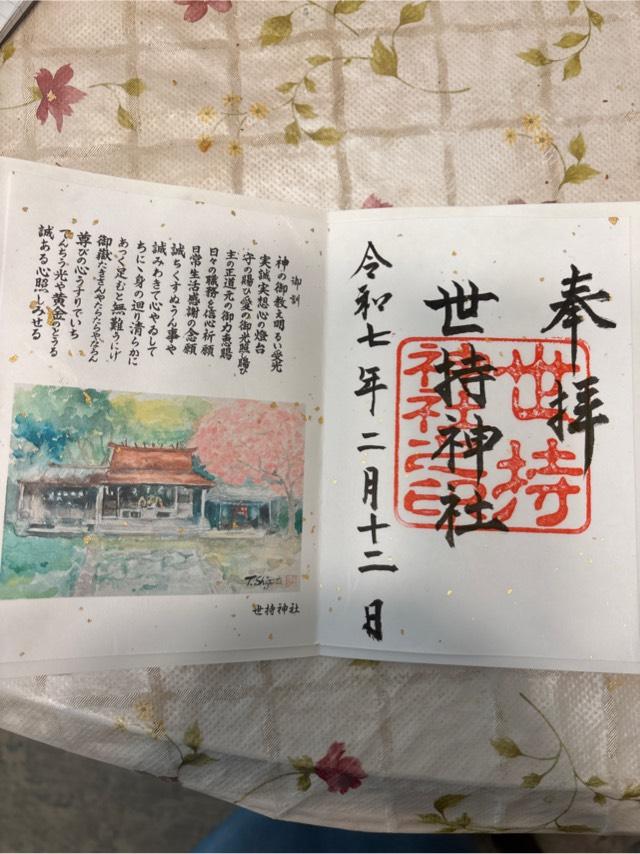 奉拝
世持神社
世持
神社之印
令和七年二月十二日
御訓
神の御教え明るい愛光
実誠実想心の燈台
守の賜ひ愛の御光照賜ひ
主の正道元の御力恵賜
日々の職務を信心祈願
日常生活感謝の念願
誠ちくすぬうん事や
誠みわきて心やゐして
ちにぐ身の廻り清らかに
あつく足むと無難うにげ
御嶽たきさんやたらたらぢんらん
尊びの心うすりでいち
てんちう光や黄金のごうる
誠ある心照しみせる
T.Shiga
世持神社